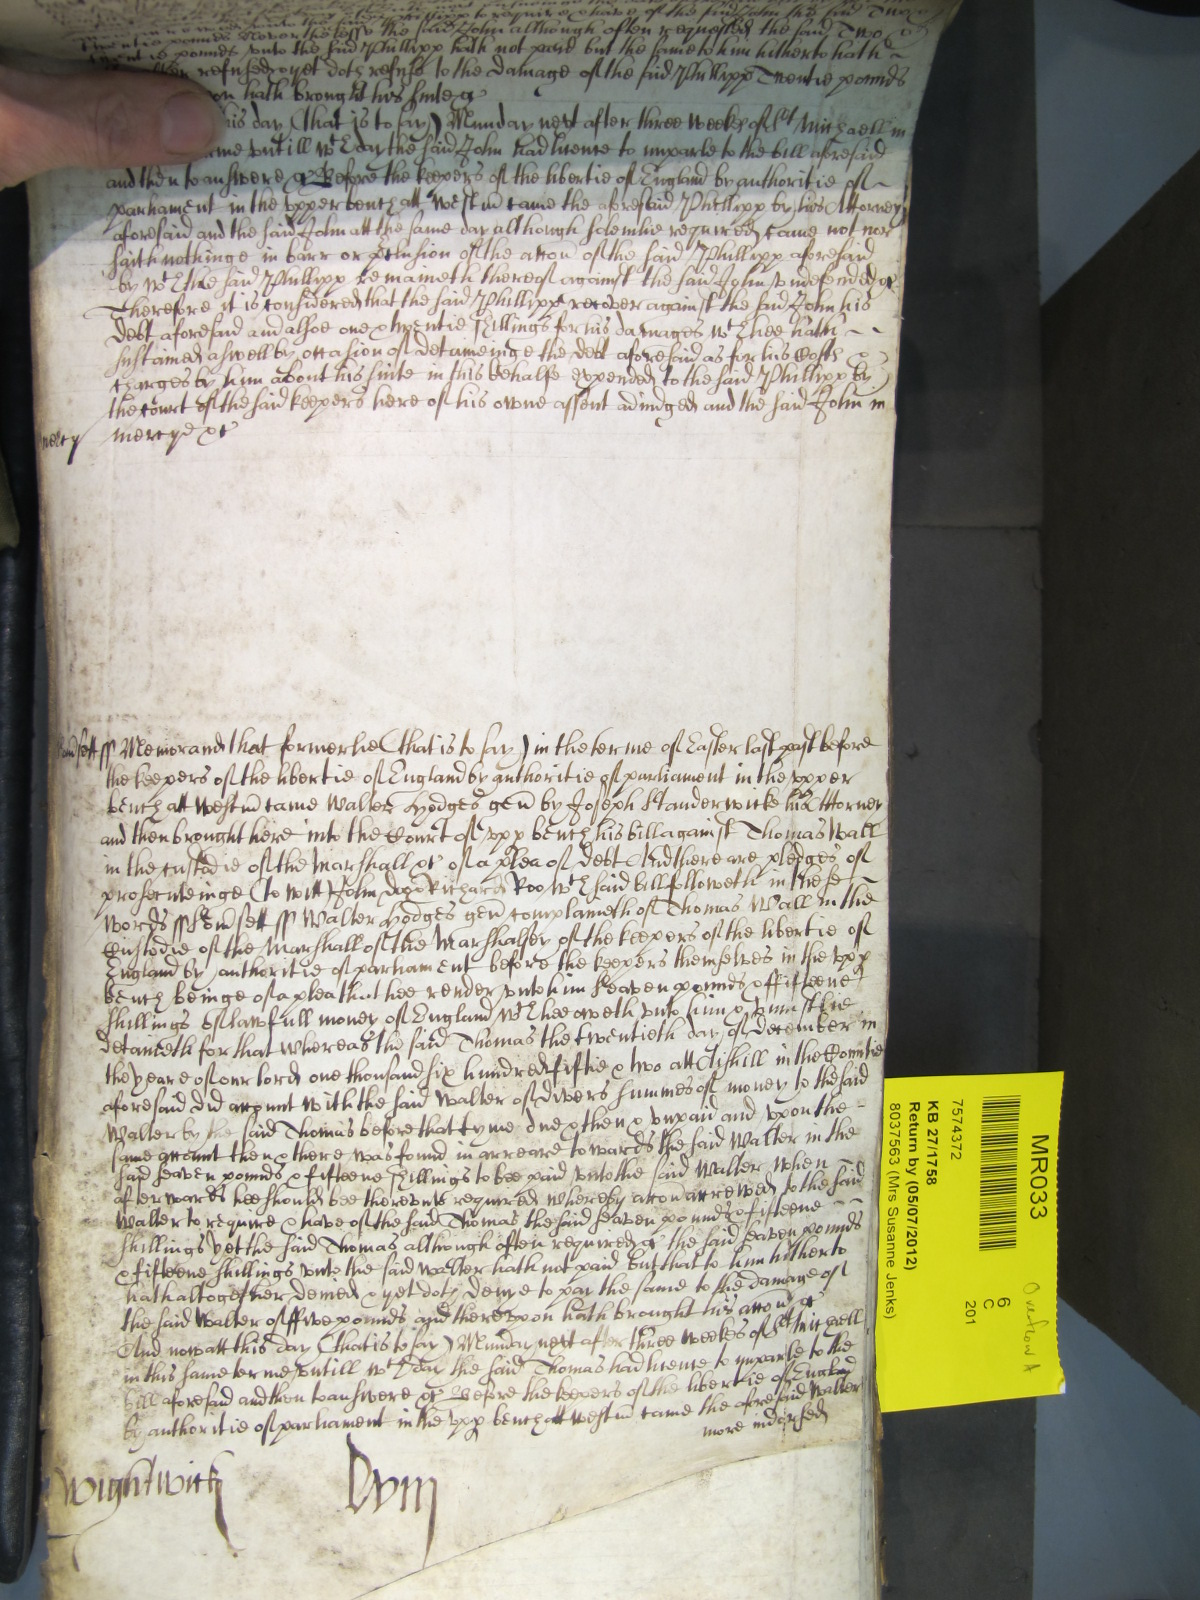 the said John although often requested the said Two
pounds unto the said Phillipp hath not paid but the same to him hitherto hath
refused & yet doth refuse to the damage of the said Phillipp Twentie pounds
hath brought his suite &c
this day (that is to say) Munday next after three weekes of St Michaell in
untill wch day the said John had licence to imparle to the bill aforesaid
and then to answere &c Before the keepers of the libertie of England by authoritie of
parliament in the upper bench att Westm came the aforesaid Phillipp by his Attorney
aforesaid and the said John att the same day although solemlie required came not nor
saith nothinge in barr or preclusion of the accon of the said Phillipp aforesaid
by wch the said Phillipp remaineth thereof against the said John undefended &c
Therefore it is considered that the said Phillipp recover against the said John his
debt aforesaid and alsoe one & twentie shillings for his damages wch hee hath
sustained aswell by occasion of detaineinge the debt aforesaid as for his Costs &
charges by him about his suite in this behalfe expended to the said Phillipp by
the court of the said keepers here of his owne assent adiudged and the said John in
mercy
mercye &c
ss Memorand that formerlie (that is to say) in the terme of Easter last past before
the keepers of the libertie of England by authoritie of parliament in the upper
bench att Westm came Walter Hodges gen by Joseph Standerwicke his Attorney
and then brought here into the Court of upp bench his bill against Thomas Wall
in the custodie of the Marshall &c of a plea of debt And there are pledges of
prosecuteinge (to witt) John Doo & Richard Roo wch said bill followeth in these
words ss Somsett ss Walter Hodges gen complaineth of Thomas Wall in the
Custodie of the Marshall of the Marshalsey of the keepers of the libertie of
England by authoritie of parliament before the keepers themselves in the upp
bench beinge of a plea that hee render unto him seaven pounds & fifteene
shillings of lawfull money of England wch hee oweth unto him & uniustlie
detaineth for that whereas the said Thomas the twentieth day of December in
the yeare of our lord one thousand six hundred fiftie & two att in the Countie
aforesaid did accompt with the said Walter of divers summes of money to the said
Walter by the said Thomas before that tyme due & then & unpaid and upon the
same accompt then & there was found in arreare towards the said Walter in the
said seaven pounds & fifteene shillings to bee paid unto the said Walter when
afterwards hee should bee thereunto required whereby accon accrewed to the said
Walter to require & have of the said Thomas the said seaven pounds & fifteene
shillings yet the said Thomas although often required &c the said seaven pounds
& fifteene shillings unto the said Walter hath not paid but that to him hitherto
hath altogether denied & yet doth denye to pay the same to the damage of
the said Walter of ffive pounds and thereupon hath brought his accon &c
And now att this day (that is to say) Munday next after three weekes of St Michaell
in this same terme untill wch day the said Thomas had licence to imparle to the
bill aforesaid and then to answere &c Before the keepers of the libertie of England
by authoritie of parliament in the upp bench att Westm came the aforesaid Walter
more indorsed
Wightwick Dviij
MR033
6
C
201
7574372
KB 27/1758
Return by (05/07/2012)
8037563 (Mrs Susanne Jenks)